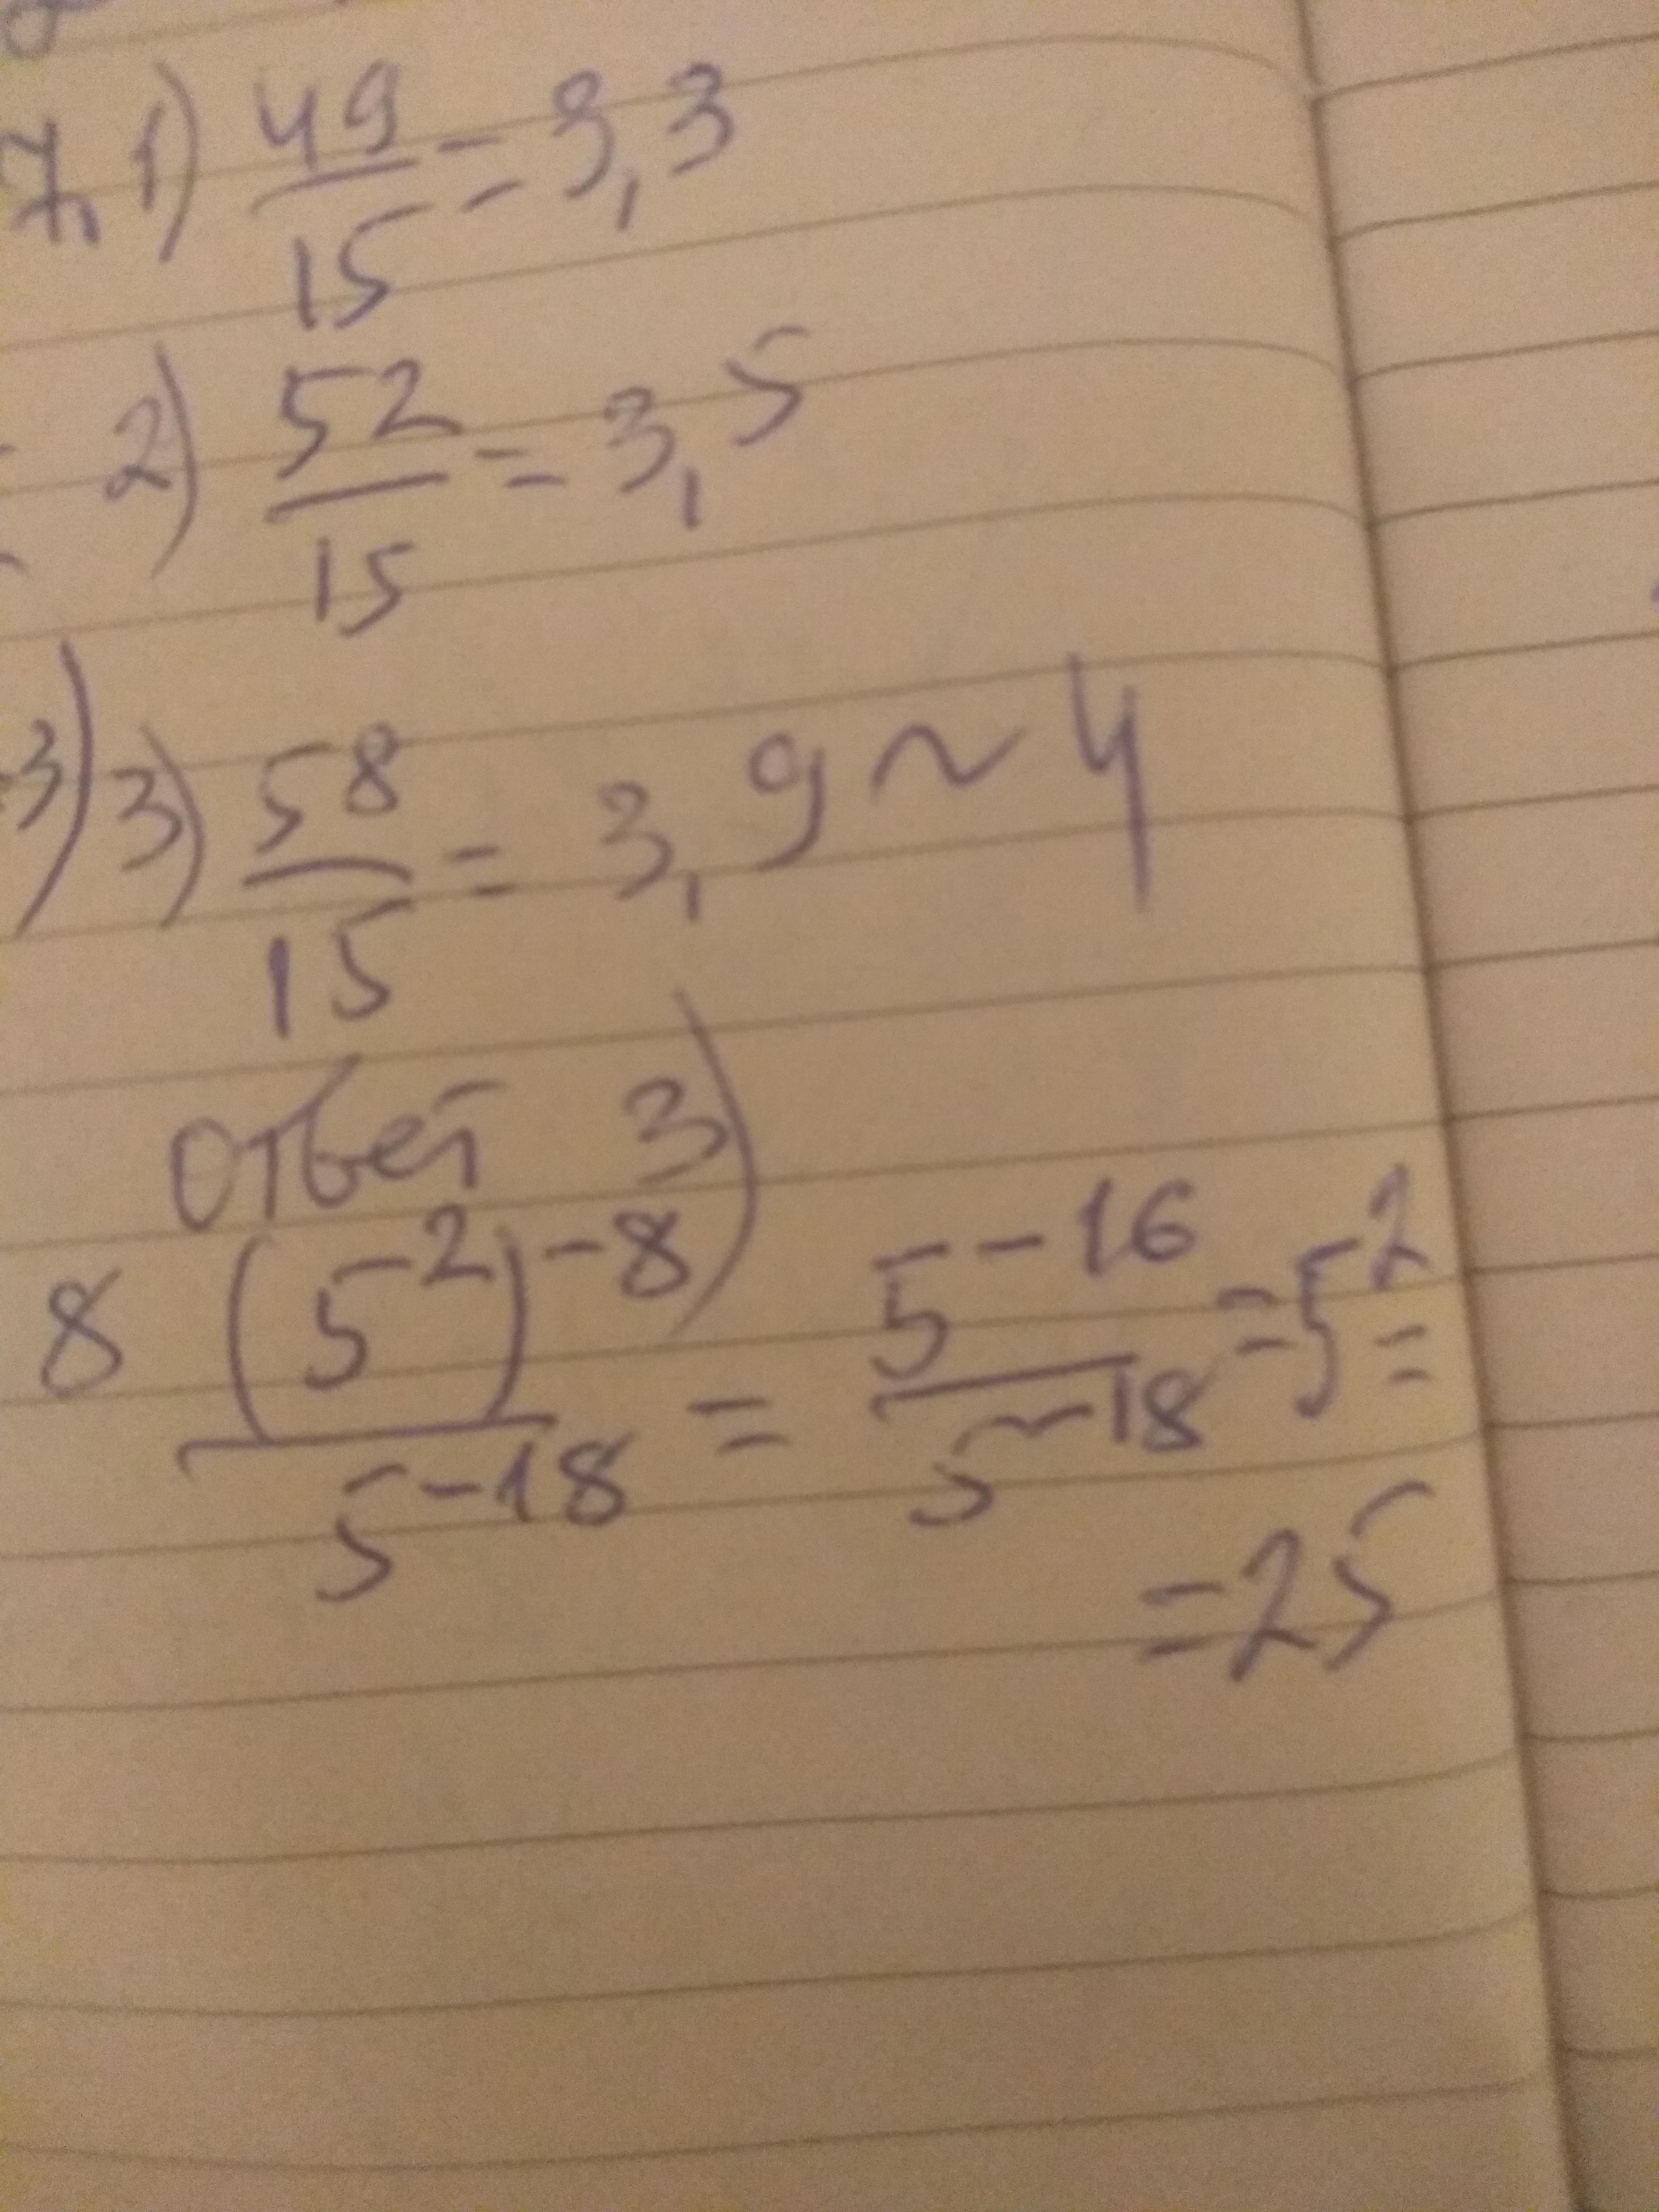 7, 1) 49/15 = 3,3
2) 52/15 = 3,5
3) 3) 58/15 = 3,9 ~ 4
ответ 3)
8 (5^2)^-8 / 5^-18 = 5^-16 / 5^-18 = 5^2 =
= 25